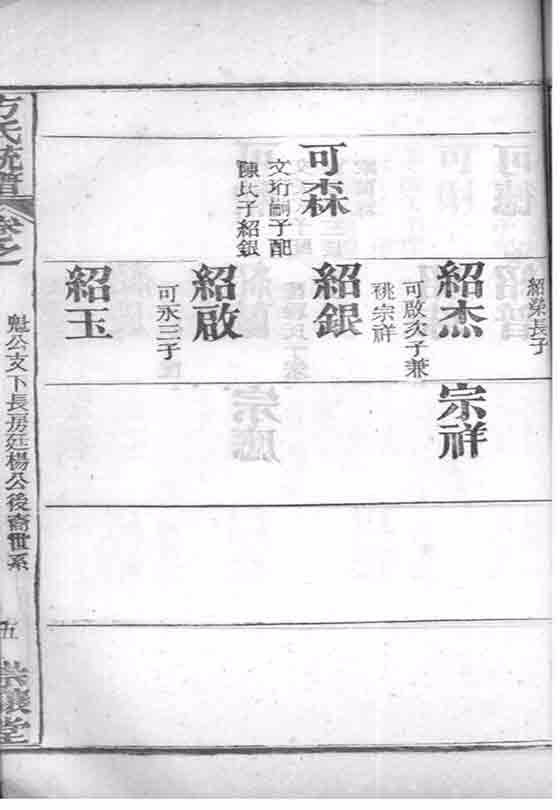 可森
文珩嗣子配
陳氏子紹銀
紹榮長子
紹杰
可啟次子兼
祧宗祥
紹銀
紹啟
可永三子
紹玉
宗祥
方氏統譜
卷之
魁公支下長房廷楊公後裔世系
五